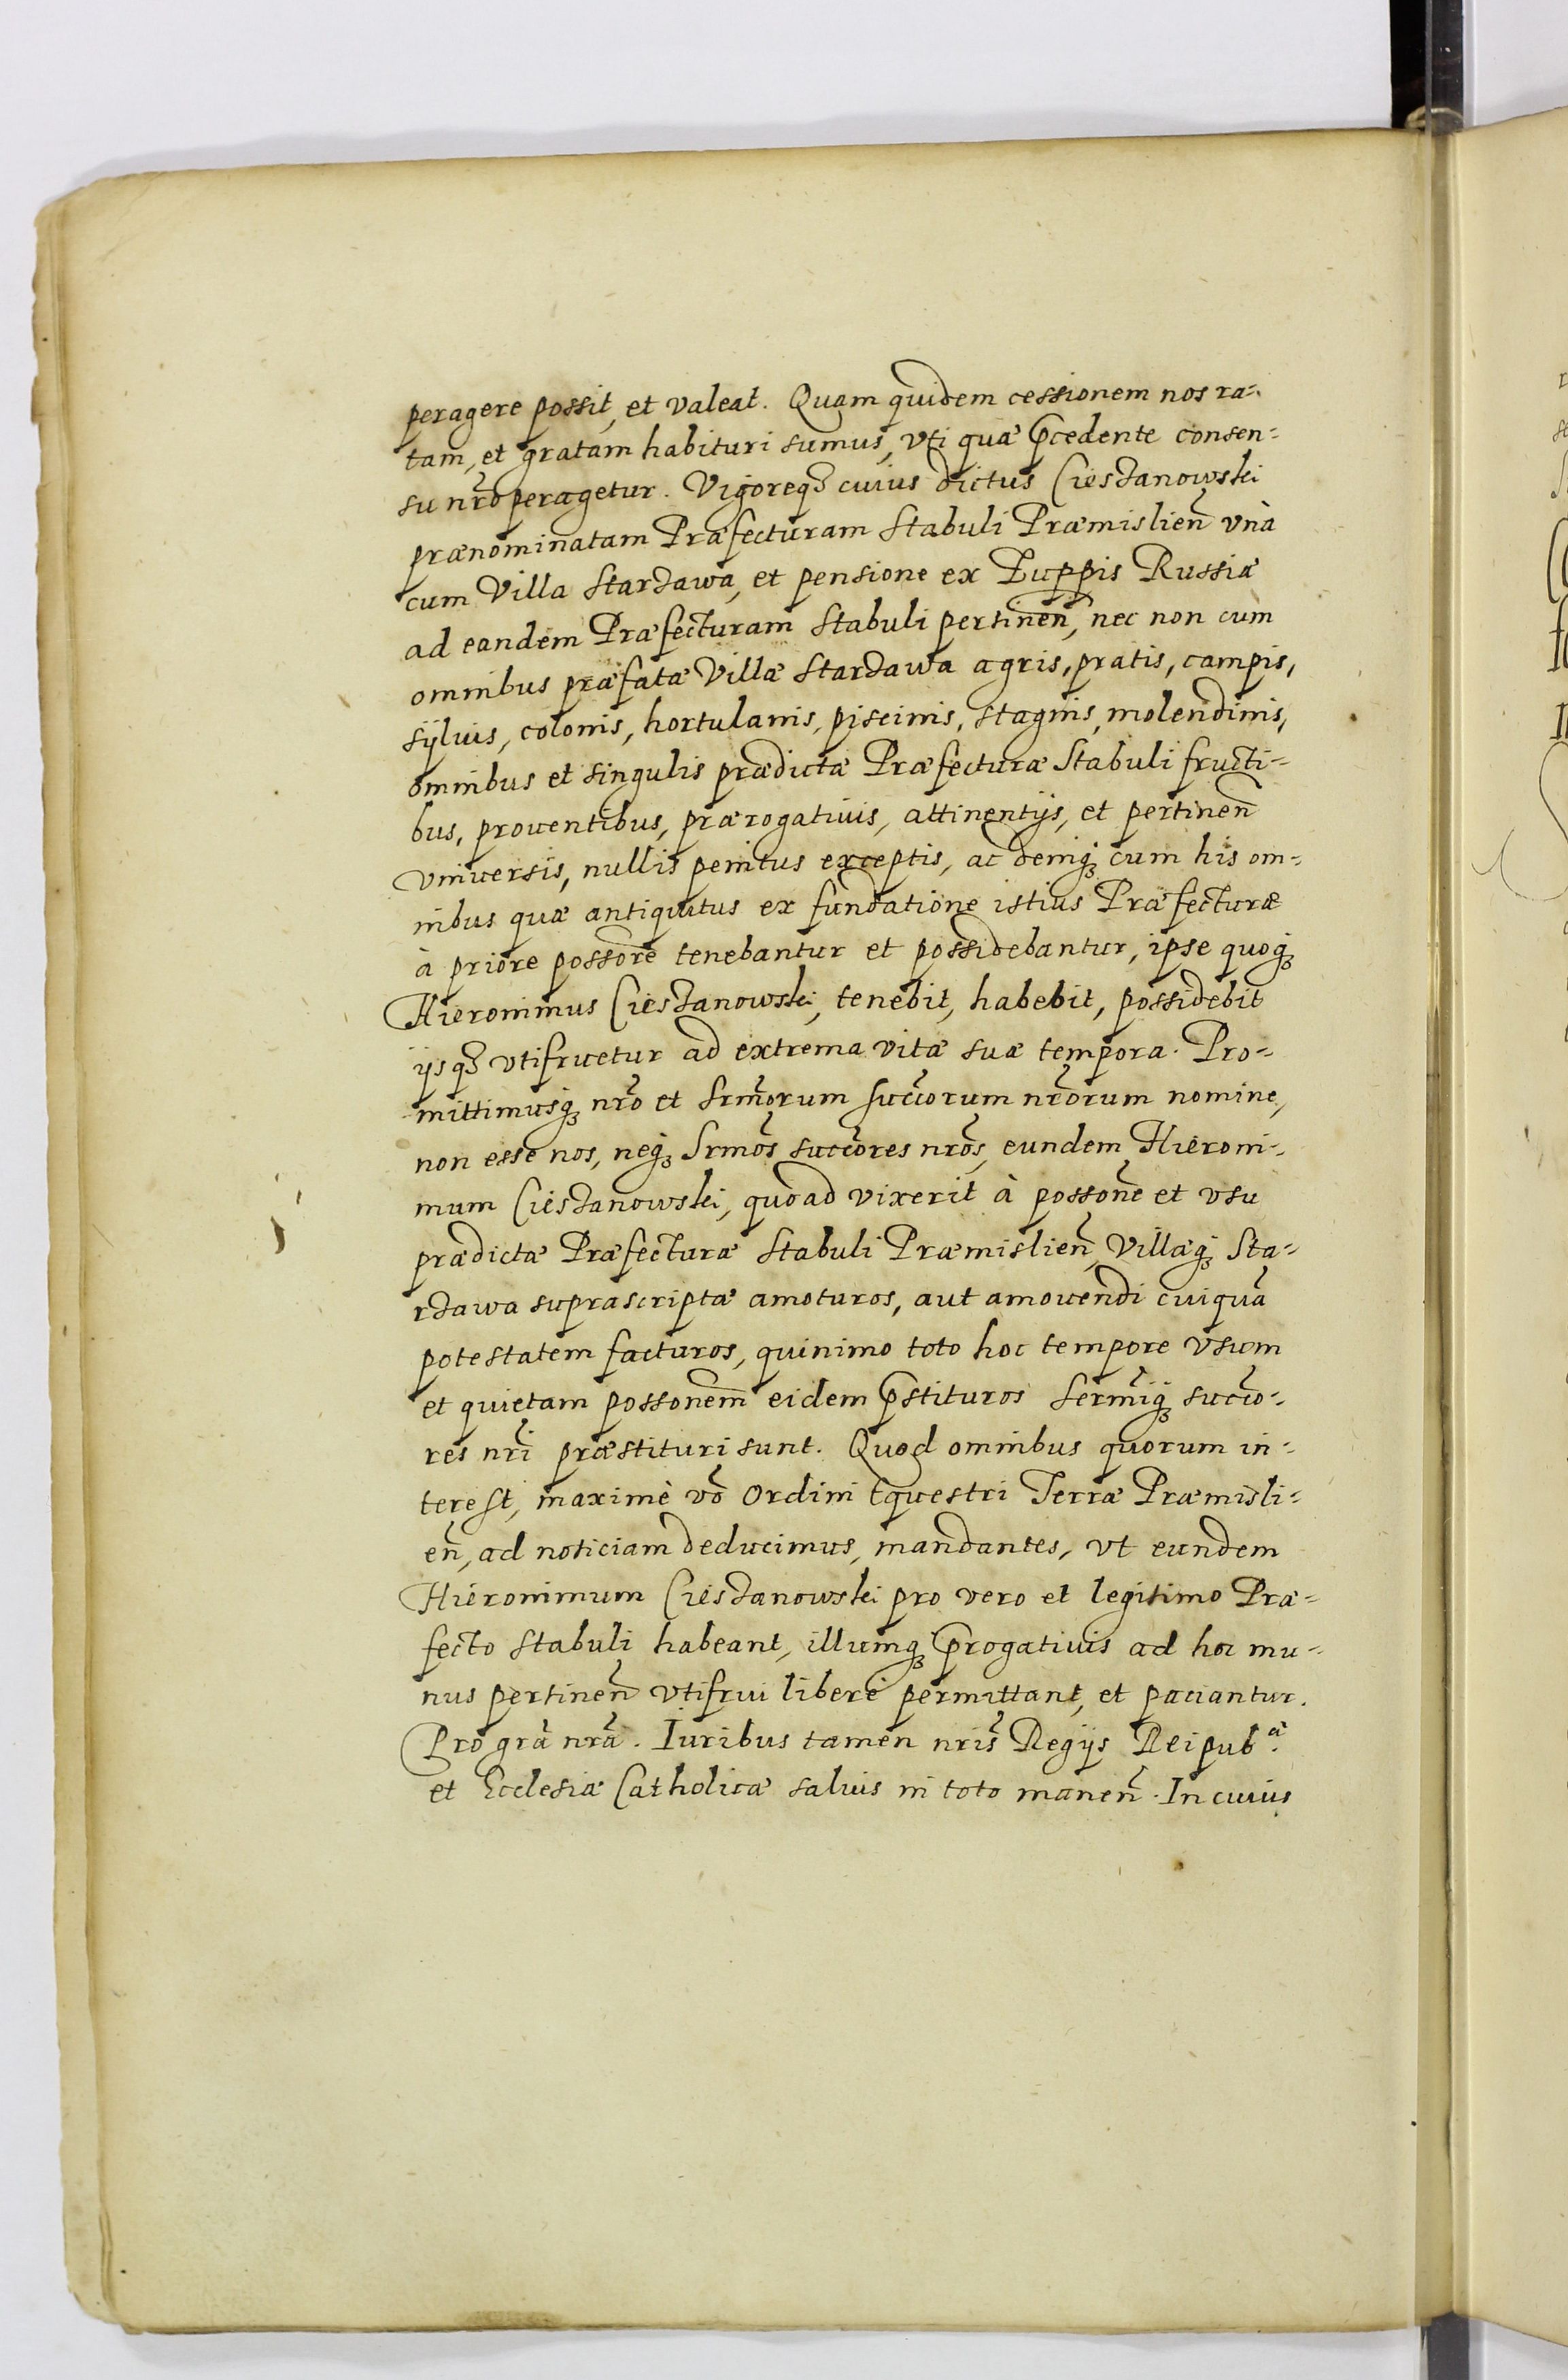 peragere possit, et valeat. Quam quidem cessionem nos ra=
tam, et gratam habituri sumus, vti quæ p̄cedente consen=
su nr̃o peragetur. Vigoreqꝫ cuius dictus Ciesзanowski
prænominatam Præfecturam Stabuli Præmislien̄ vnà
cum Villa Starзawa, et pensione ex Zuppis Russiæ
ad eandem Præfecturam Stabuli pertinen̄, nec non cum
omnibus præfatæ Villæ Starзawa agris, pratis, campis,
sÿluis, colonis, hortulanis, piscinis, stagnis, molendinis,
omnibus et singulis prædictæ Præfecturæ Stabuli fructi=
bus, prouentibus, prærogatiuis, attinentijs, et pertinen̄
vniuersis, nullis penitus exceptis, ac deniqꝫ cum his om=
nibus quæ antiquitus ex fundatione istius Præfecturæ
à priore possore tenebantur et possidebantur, ipse quoqꝫ
Hieronimus Ciesзanowski, tenebit, habebit, possidebit
ijsqꝫ vtifruetur ad extrema vitæ suæ tempora. Pro=
mittimusqꝫ nr̃o et Srm̃orum succ̃orum nr̃orum nomine,
non esse nos, neqꝫ Srmõs succõres nrõs, eundem Hieroni=
mum Ciesзanowski, quoad vixerit à possonẽ et vsu
prædictæ Præfecturæ Stabuli Præmislien̄, Villæqꝫ Sta=
rзawa suprascriptæ amoturos, aut amouendi cuiquã
potestatem facturos, quinimo toto hoc tempore vsum
et quietam possonem̄ eidem p̄stituros Serm̃iqꝫ succõ=
res nr̃i præstituri sunt. Quod omnibus quorum in=
terest, maximè võ Ordini Equestri Terræ Præmisli=
en̄, ad noticiam deducimus, mandantes, vt eundem
Hieronimum Ciesзanowski pro vero et legitimo Præ=
fecto Stabuli habeant, illumqꝫ p̄rogatiuis ad hoc mu=
nus pertinen̄ vtifrui liberè permittant, et paciantur.
Pro grã nrã. Iuribus tamen nrĩs Regijs Reipub.ᵃ
et Ecclesiæ Catholicæ saluis in toto manen̄. In cuius